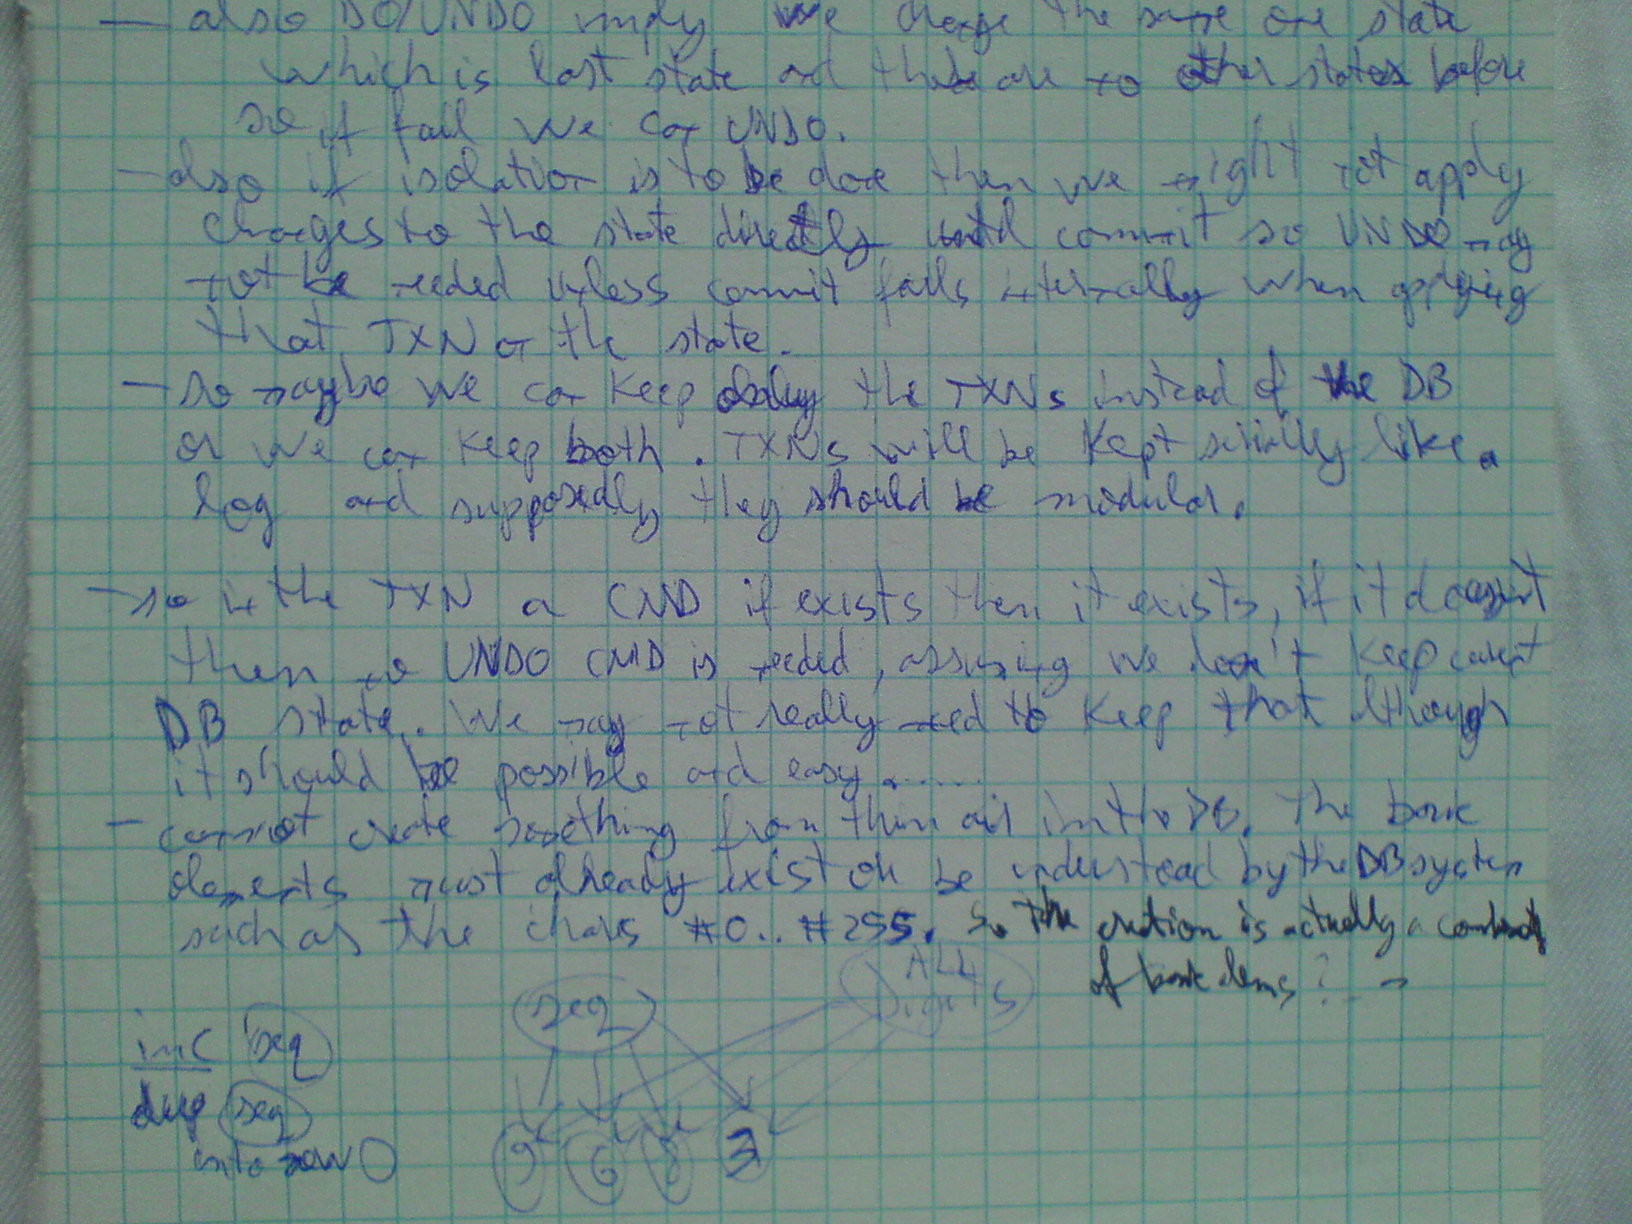 — also DO/UNDO imply we change the same one state
which is last state and there are no other states before
so if fail we can UNDO.
— also if isolation is to be done then we might not apply
changes to the state directly until commit so UNDO may
not be needed unless commit fails internally when applying
that TXN on the state.
— so maybe we can keep the TXNs instead of the DB
or we can keep both. TXNs will be kept serially like a
log and supposedly they should be modular.
— so in the TXN a CMD if exists then it exists, if it doesn't
then no UNDO CMD is needed, assuming we don't keep current
DB state. We may not really need to keep that though
it should be possible and easy.......
— cannot create something from thin air in the DB. The basic
elements must already exist or be understood by the DB system
such as the chars #0..#255. So the creation is actually a
of basic elems? →
ALL
Digits
seq
inc seq
dup seq
into new
9 6 8 3